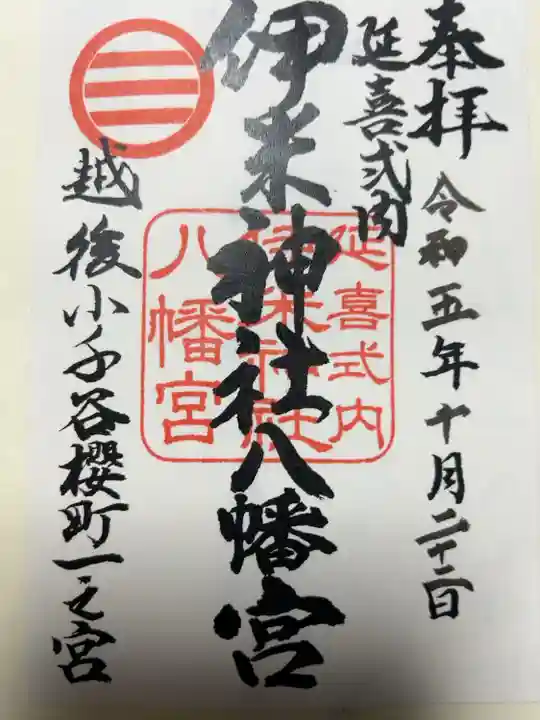 奉拝
令和五年十月二十二日
延喜式内
伊米神社八幡宮
越後小千谷櫻町一之宮
延喜式内
伊米神社
八幡宮